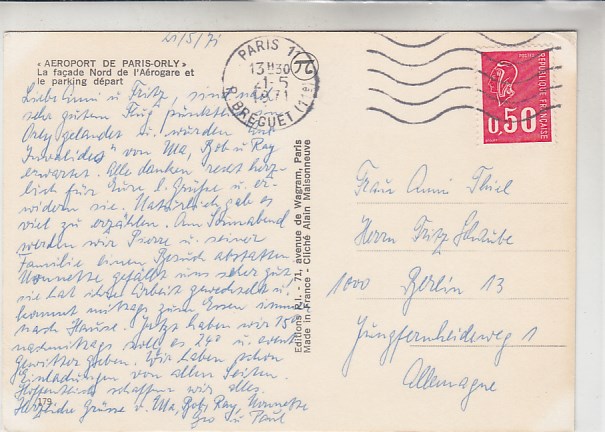 21/5/71
« AEROPORT DE PARIS-ORLY »
La façade Nord de l'Aérogare et
le parking départ
PARIS 11
13H30
21-5
1971
R. BREGUET (11e)
REPUBLIQUE FRANÇAISE
POSTES
0,50
Liebe Anni u Fritz, sind nach
sehr gutem Flug pünktlich
Orly gelandet u. wurden auf
"Invalides" von Ma, Bob u Ray
erwartet. Alle danken recht herz-
lich für Eure l. Grüße u er-
widern sie. Natürlich gab es
viel zu erzählen. Am Sonnabend
werden wir Pierre u. seiner
Familie einen Besuch abstatten.
Nonnette gefällt uns sehr gut
sie hat ihre Arbeit gewechselt u.
kommt mittags zum Essen immer
nach Hause. Jetzt haben wir 15°
nachmittags soll es 24° u. event.
Gewitter geben. Wir haben schon
Einladungen von allen Seiten.
Hoffentlich schaffen wir alles.
Herzliche Grüsse v. Ma, Bob, Ray, Nonnette
u Paul
179
Editions P.I. - 71, avenue de Wagram, Paris
Made in France - Cliché Alain Maisonneuve
Frau Anni Thiel
Herrn Fritz Schube
1000 Berlin 13
Jungfernheideweg 1
Allemagne